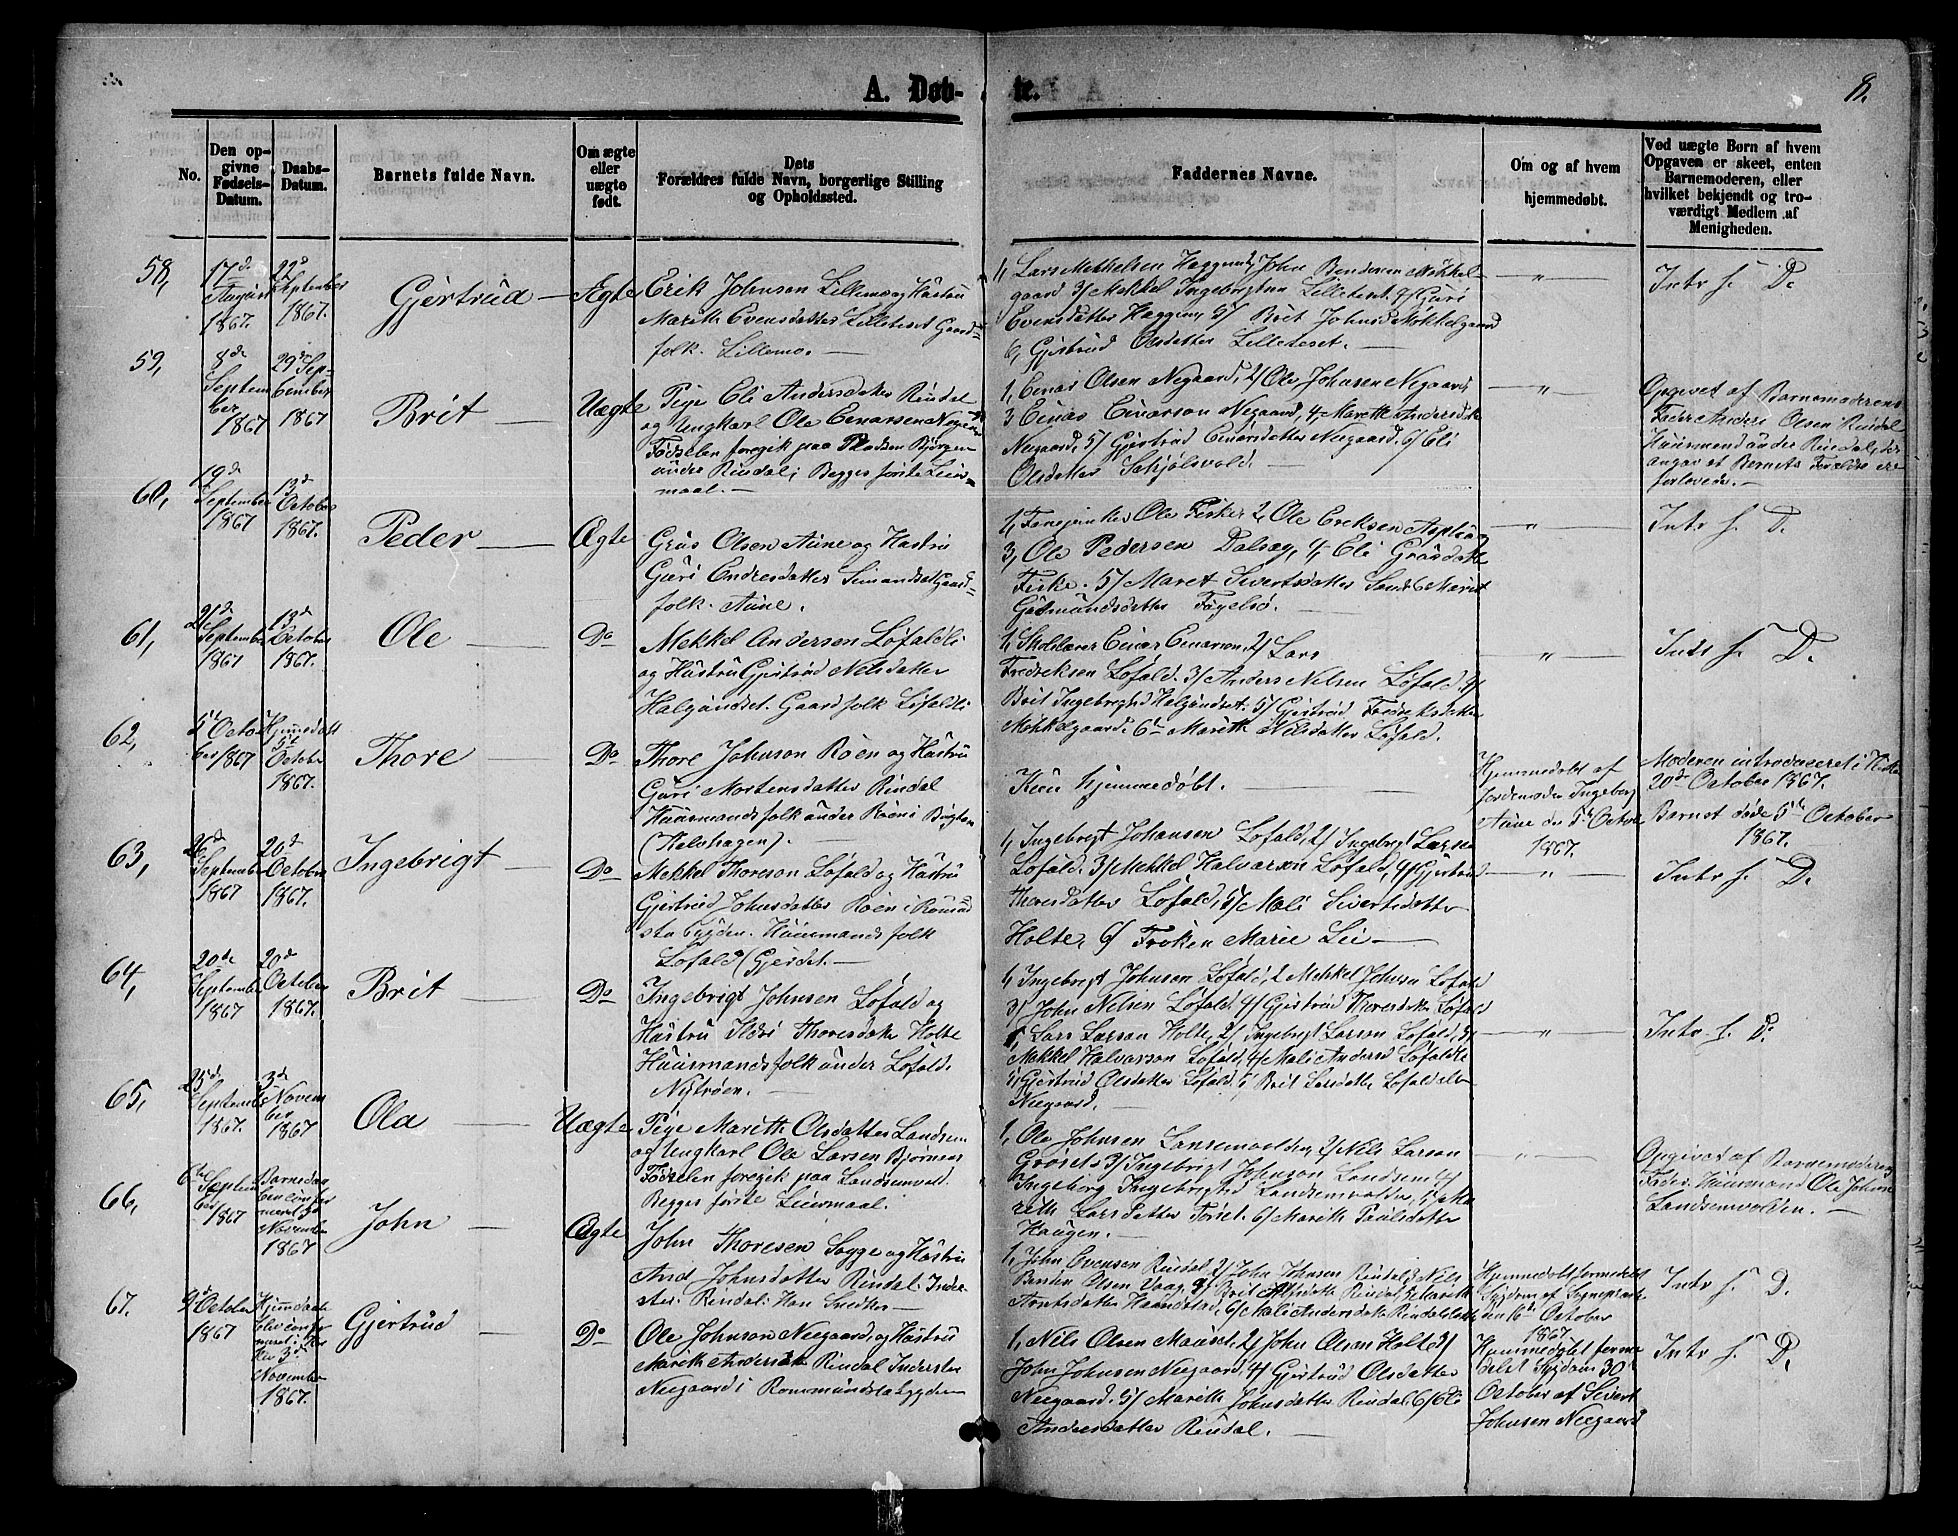 A. Døb-
te.
8.
No.
Den op-
givne
Fødsels-
Datum.
Daabs-
Datum.
Barnets fulde Navn.
Om ægte
eller
uægte
født.
Dets
Forældres fulde Navn, borgerlige Stilling
og Opholdssted.
Faddernes Navne.
Om og af hvem
hjemmedøbt.
Ved uægte Børn af hvem
Opgaven er skeet, enten
Barnemoderen, eller
hvilket bekjendt og tro-
værdigt Medlem af
Menigheden.
58,
17de
August
1867.
22d
September
1867.
Gjertrud
Ægte
Erik Johnsen Lillemo og Hustru
Marith Evensdatter Lilleteset Gaard-
folk. Lillemo.
1, Lars Mekkelsen Heggem, John Bendsen Møkkel-
gaard 3/ Mekkel Ingebrigtsen Lilleteset. 4/ Guri
Evensdatter Heggem, 5/ Brit Johnsd Møkkelgaard
6, Gjertrud Olsdatter Lilleteset.
"
Intr f. D.
59,
8de
Septem
ber
1867
29d Sep-
tember
1867
Brit
Uægte
Pige Eli Andersdatter Rindal
og Ungkarl Ole Einarsen Negaard
Fødselen foregik paa Pladsen
under Rindal; Begges første Leier-
maal.
1, Einar Olsen Negaard, 2/ Ole Johnsen Negaard,
3 Einar Einarson Negaard, 4, Marith Andersdatter
Negaard, 5/ Gjertrud Einarsdatter Neegaard. 6/ Eli
Olsdatter
"
Opgivet af Barnemoderens
Fader Anders Olsen Rindal
Huusmand under Rindal, der
angav at Barnets Forældre ere
forlovede.
60,
19de
September
1867
13d
October
1867.
Peder
Ægte
Olsen Aune og Hustru
Guri Endresdatter Gaard-
folk. Aune.
1, Ole Fiske 2, Ole Eriksen
3, Ole Pedersen Dalsæg, 4, Eli
Fiske. 5/ Maret Sivertsdatter 6 Marit
Gudmundsdatter Fugelsø.
"
Intr f. D.
61,
21de
September
1867
13d
October
1867.
Ole
Do
Mekkel Andersen Løfaldli
og Hustru Gjertrud Nilsdatter
Halgundset. Gaardfolk Løfaldli
1, Skolelærer Einar Einarson, 2/ Lars
Fredriksen Løfald. 3/ Anders Nilsen Løfald, 4/
Brit Ingebrigtsd Halgundset. 5/ Gjertrud Fredriksdatter
Møkkelgaard. 6, Marith Nilsdatter Løfald.
"
Intr f. D.
62,
5 Octo
ber 1867
Hjemmedøbt
5te
October
1867.
Thore
Do
Thore Johnson Røen og Hustru
Guri Mortensdatter Rindal
Huusmandsfolk under Røen
(Kalvhagen).
Kun hjemmedøbt.
Hjemmedøbt af
Jordemoder Ingeborg
Aune den 5te Octobr
1867.
Moderen introduceret i Kirke
20de October 1867.
Barnet døde 5te October
1867.
63,
September
1867
20de
October
1867.
Ingebrigt
Do
Mekkel Thoreson Løfald og Hustru
Gjertrud Johnsdatter Røen i Romund
stadbygden. Huusmandsfolk
Løfald (Gjerdet.
1, Ingebrigt Johansen Løfald, 2/ Ingebrigt Larsen
Løfald. 3/ Mekkel Halvarson Løfald, 4/ Gjertrud
Thoresdatter Løfald, 5/ Mali Sivertsdatter
Holte, 6/ Frøken Marie Lie
"
Intr f. D.
64,
20de
September
1867
20d
October
1867.
Brit
Do
Ingebrigt Johnsen Løfald og
Hustru Thoresdatter Holte
Huusmandsfolk under Løfald.
Nystuen.
1, Ingebrigt Johnsen Løfald, 2 Mekkel Johnsen Løfald
3/ John Nilsen Løfald. 4/ Gjertrud Thoresdatter Løfald
1, Lars Larsen Holte, 2/ Ingebrigt Larsen Løfald, 3/
Mekkel Halvarson Løfald, 4/ Mali Andersd Løfaldli
5, Gjertrud Olsdatter Løfald, 6 Brit Løfald
Neegaard.
"
Intr f. D.
65,
25de
Septembr
1867.
3d
Novem
ber
1867
Ola
Uægte
Pige Marith Olsdatter Landsem
og Ungkarl Ole Larsen Bjørnaas
Fødselen foregik paa Landsemvold.
Begges første Leiermaal.
1, Ole Johnsen Landsemvolden 2/ Nils Larson
Grøset 3/ Ingebrigt Johnson Landsem 4/
Ingeborg Ingebrigtsd Landsemvolden, 5/ Ma
reth Larsdatter Torset. 6/ Marith Paulsdatter
Haugen.
"
Opgivet af Barnemoderens
Fader Huusmand Ole Johnsen
Landsemvolden.
66,
Septem
ber
1867
November
1867
John
Ægte
John Thoresen Sogge og Hustru
And Johnsdatter Rindal Inder-
ster. Rindal: Han Snedker.
1, John Evensen Rindal 2/ John Johnsen Rindal, 3 Nils
Olsen Vaag, 4/ Brit Rindal, 5 Marith
Arntsdatter, 6/ Mali Andersdatter Rindal
Hjemmedøbt formedelst
Sygdom af
den 16de October
1867.
Intr f. D.
67.
9de October
1867
Hjemmedøbt
3d
November
1867.
Gjertrud
Do
Ole Johnson Neegaard, og Hustru
Marith Andersdatter Rindal Inderster
Neegaard i Rommundstadbygden
1, Nils Olsen Mauset, 2/ John Olson Holte 3/
John Johnsen Neegaard, 4/ Gjertrud Olsdatter
Neegaard. 5/ Marith Johnsdatter Rindal. 6/ Eli
Andersdatter Rindal.
Hjemmedøbt forme
delst Sygdom 30te
October af Sivert
Johnsen Neegaard
Intr f. D.